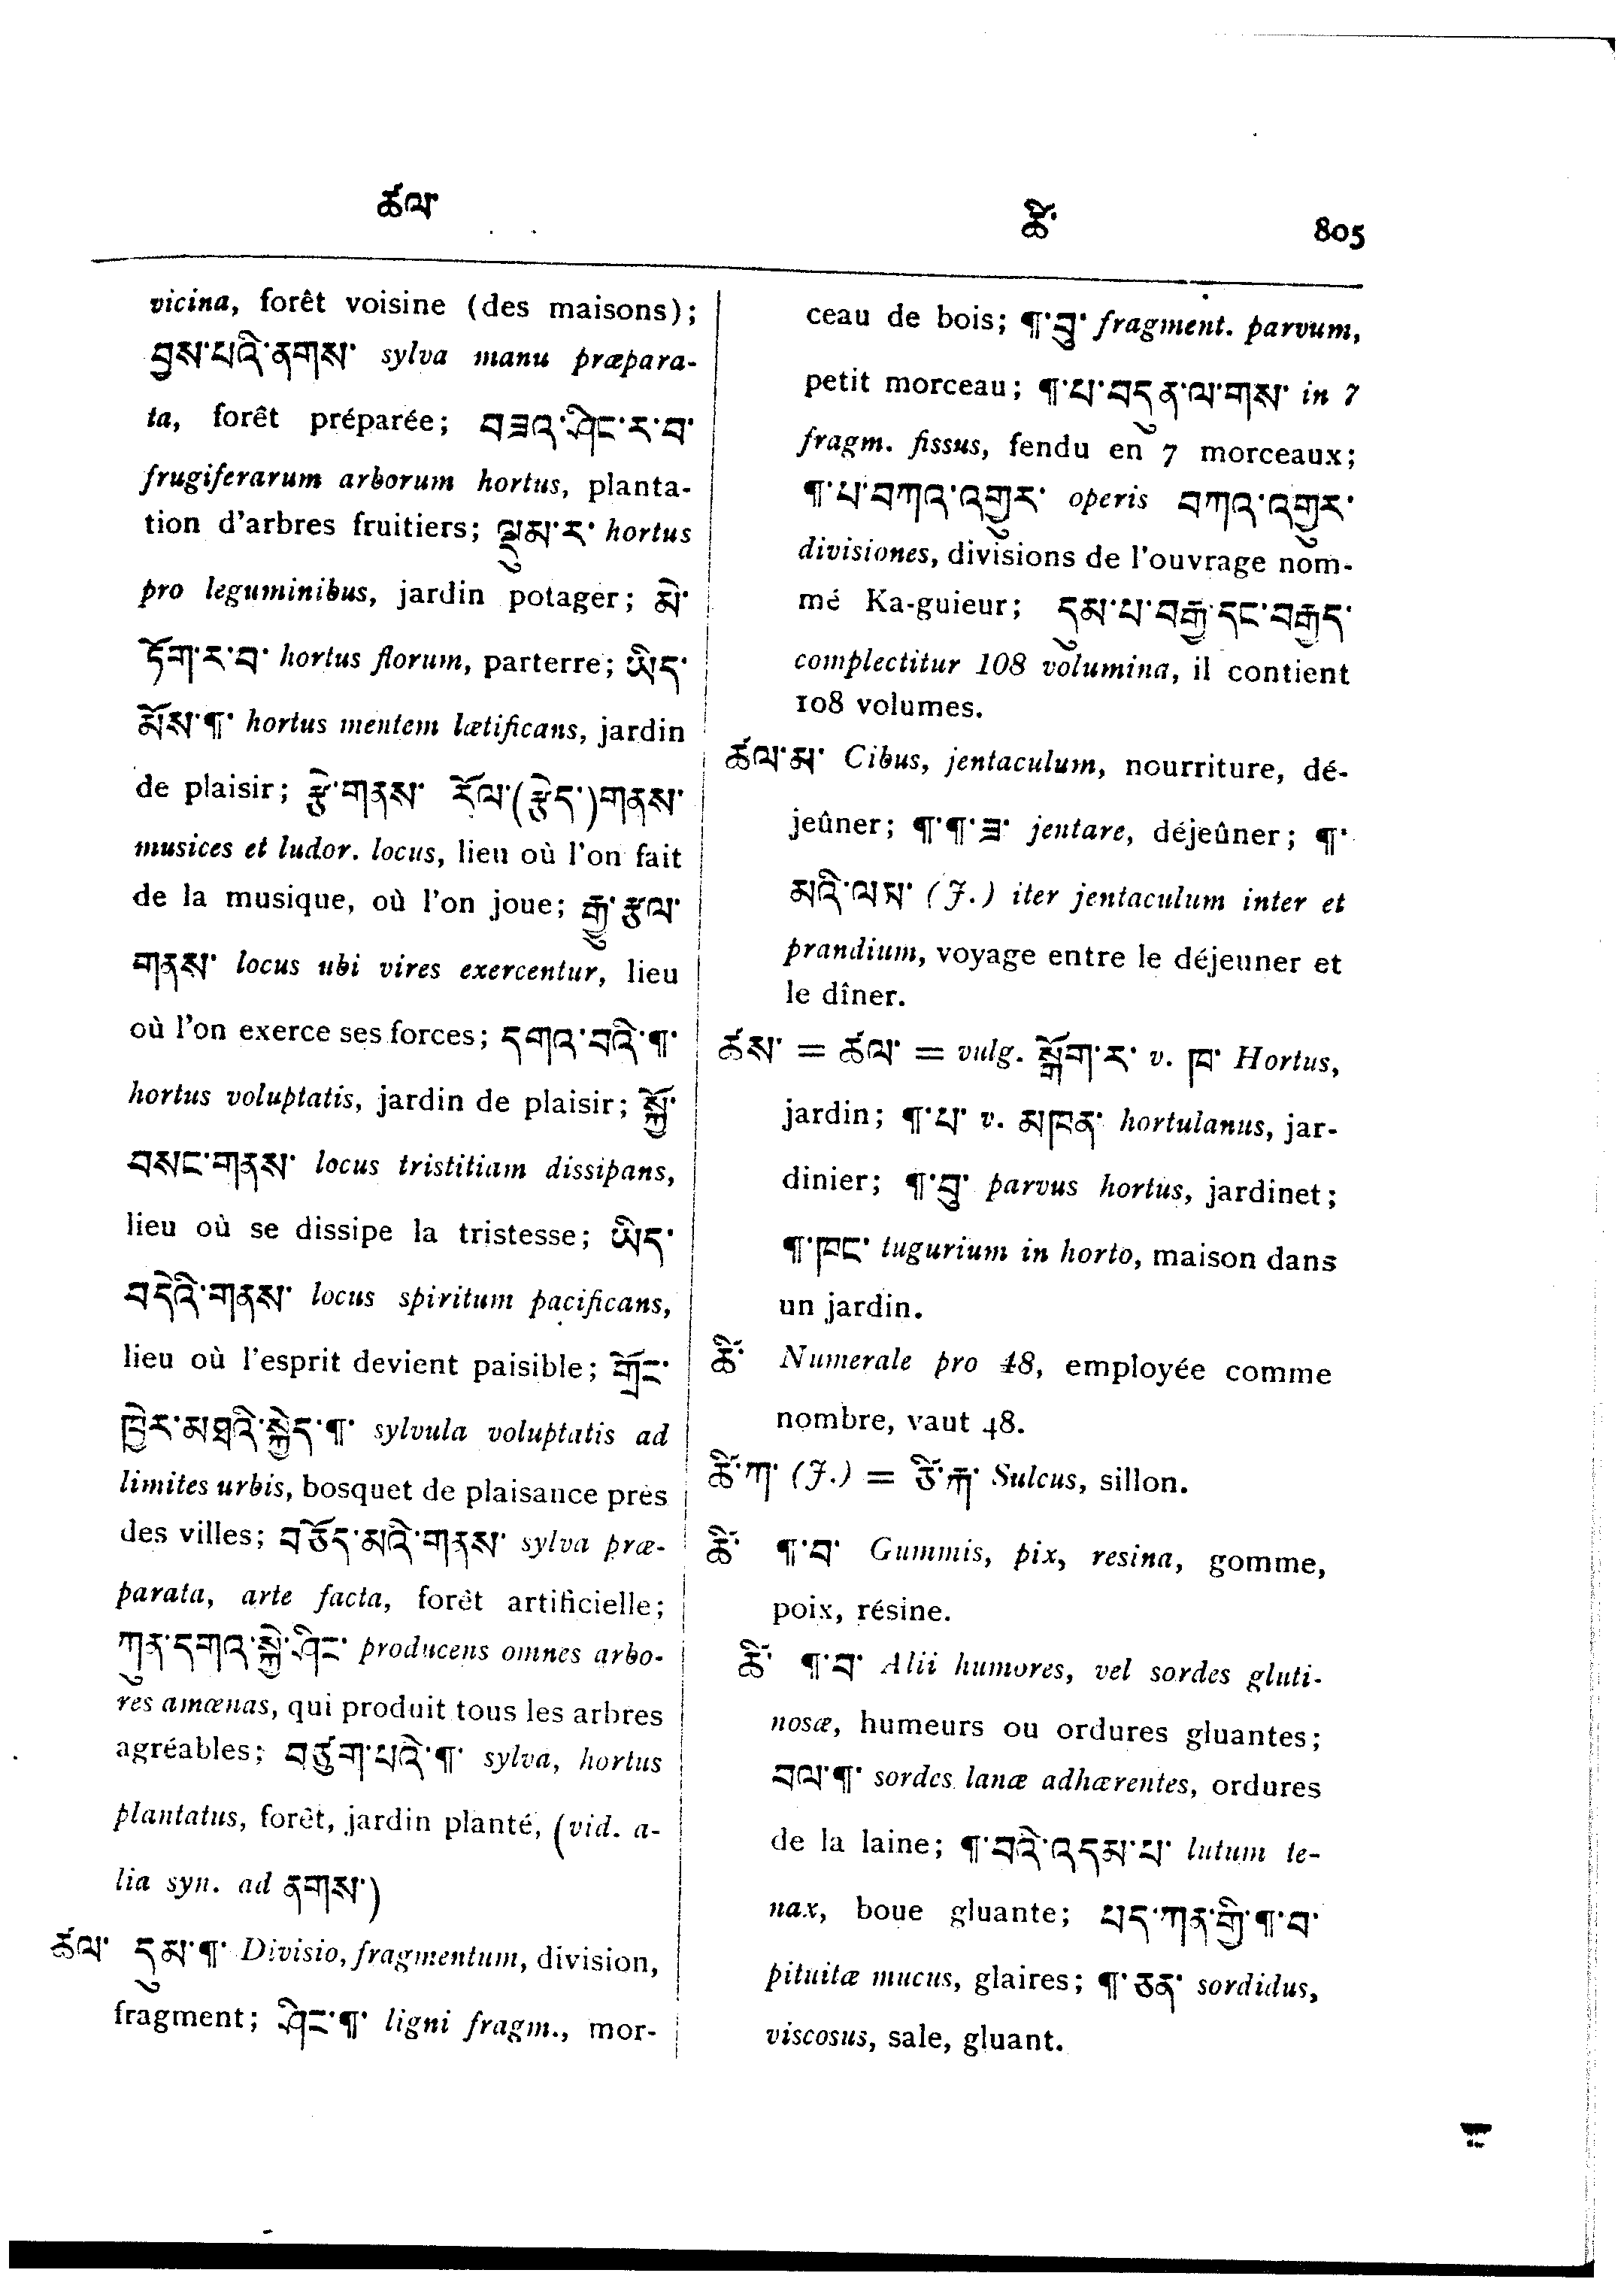 ཚལ་
ཚི་ 805
vicina, forêt voisine (des maisons);
བྱས་པའི་ནགས་ sylva manu præpara-
ta, forêt préparée; བཟའ་ཤིང་ར་བ་
frugiferarum arborum hortus, planta-
tion d'arbres fruitiers; ལྡུམ་ར་ hortus
pro leguminibus, jardin potager; མེ་
ཏོག་ར་བ་ hortus florum, parterre; ཡིད་
མོས་¶་ hortus mentem lætificans, jardin
de plaisir; རྩེ་གནས་ རོལ་(རྩེད་)གནས་
musices et ludor. locus, lieu où l'on fait
de la musique, où l'on joue; རྒྱུ་རྩལ་
གནས་ locus ubi vires exercentur, lieu
où l'on exerce ses forces; དགའ་བའི་¶་
hortus voluptatis, jardin de plaisir; སྐྱོ་
བསང་གནས་ locus tristitiam dissipans,
lieu où se dissipe la tristesse; ཡིད་
བདེའི་གནས་ locus spiritum pacificans,
lieu où l'esprit devient paisible; གྲོང་
ཁྱེར་མཐའི་སྐྱེད་¶་ sylvula voluptatis ad
limites urbis, bosquet de plaisance près
des villes; བཅོད་མའི་གནས་ sylva præ-
parata, arte facta, forêt artificielle;
ཀུན་དགའ་སྐྱེ་ཤིང་ producens omnes arbo-
res amœnas, qui produit tous les arbres
agréables; བཙུག་པའི་¶་ sylva, hortus
plantatus, forêt, jardin planté, (vid. a-
lia syn. ad ནགས་)
ཚལ་ དུམ་¶་ Divisio, fragmentum, division,
fragment; ཤིང་¶་ ligni fragm., mor-
ceau de bois; ¶་བུ་ fragment. parvum,
petit morceau; ¶་པ་བདུན་ལ་གས་ in 7
fragm. fissus, fendu en 7 morceaux;
¶་པ་བཀའ་འགྱུར་ operis བཀའ་འགྱུར་
divisiones, divisions de l'ouvrage nom-
mé Ka-guieur; དུམ་པ་བརྒྱ་དང་བརྒྱད་
complectitur 108 volumina, il contient
108 volumes.
ཚལ་མ་ Cibus, jentaculum, nourriture, dé-
jeûner; ¶་¶་ཟ་ jentare, déjeûner; ¶་
མའི་ལམ་ (J.) iter jentaculum inter et
prandium, voyage entre le déjeuner et
le dîner.
ཚས་ = ཚལ་ = vulg. སྒོག་ར་ v. ཁ་ Hortus,
jardin; ¶་པ་ v. མཁན་ hortulanus, jar-
dinier; ¶་བུ་ parvus hortus, jardinet;
¶་ཁང་ tugurium in horto, maison dans
un jardin.
ཚི་ Numerale pro 48, employée comme
nombre, vaut 48.
ཚི་ཀ་ (J.) = ཙི་ཀ་ Sulcus, sillon.
ཚི་ ¶་བ་ Gummis, pix, resina, gomme,
poix, résine.
ཚི་ ¶་བ་ Alii humores, vel sordes gluti-
nosæ, humeurs ou ordures gluantes;
བལ་¶་ sordes lanæ adhærentes, ordures
de la laine; ¶་བའི་འདམ་པ་ lutum te-
nax, boue gluante; པད་ཀན་གྱི་¶་བ་
pituitæ mucus, glaires; ¶་ཅན་ sordidus,
viscosus, sale, gluant.